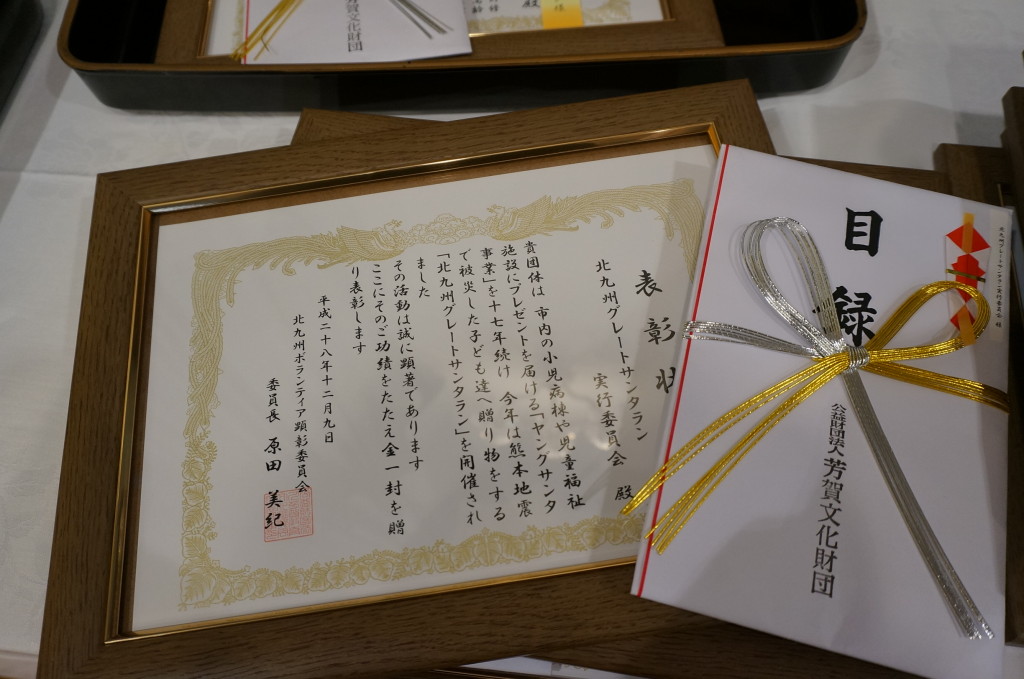 表彰状
北九州グレートサンタラン
実行委員会 殿
貴団体は 市内の小児病棟や児童福祉
施設にプレゼントを届ける「ヤングサンタ
事業」を十七年続け 今年は熊本地震
で被災した子ども達へ贈り物をする
「北九州グレートサンタラン」を開催され
ました
その活動は誠に顕著であります
ここにそのご功績をたたえ金一封を贈
り表彰します
平成二十八年十二月九日
北九州ボランティア顕彰委員会
委員長 原田 美紀
目録
公益財団法人 芳賀文化財団
北九州グレートサンタラン実行委員会 様
賀文化財団
殿
様